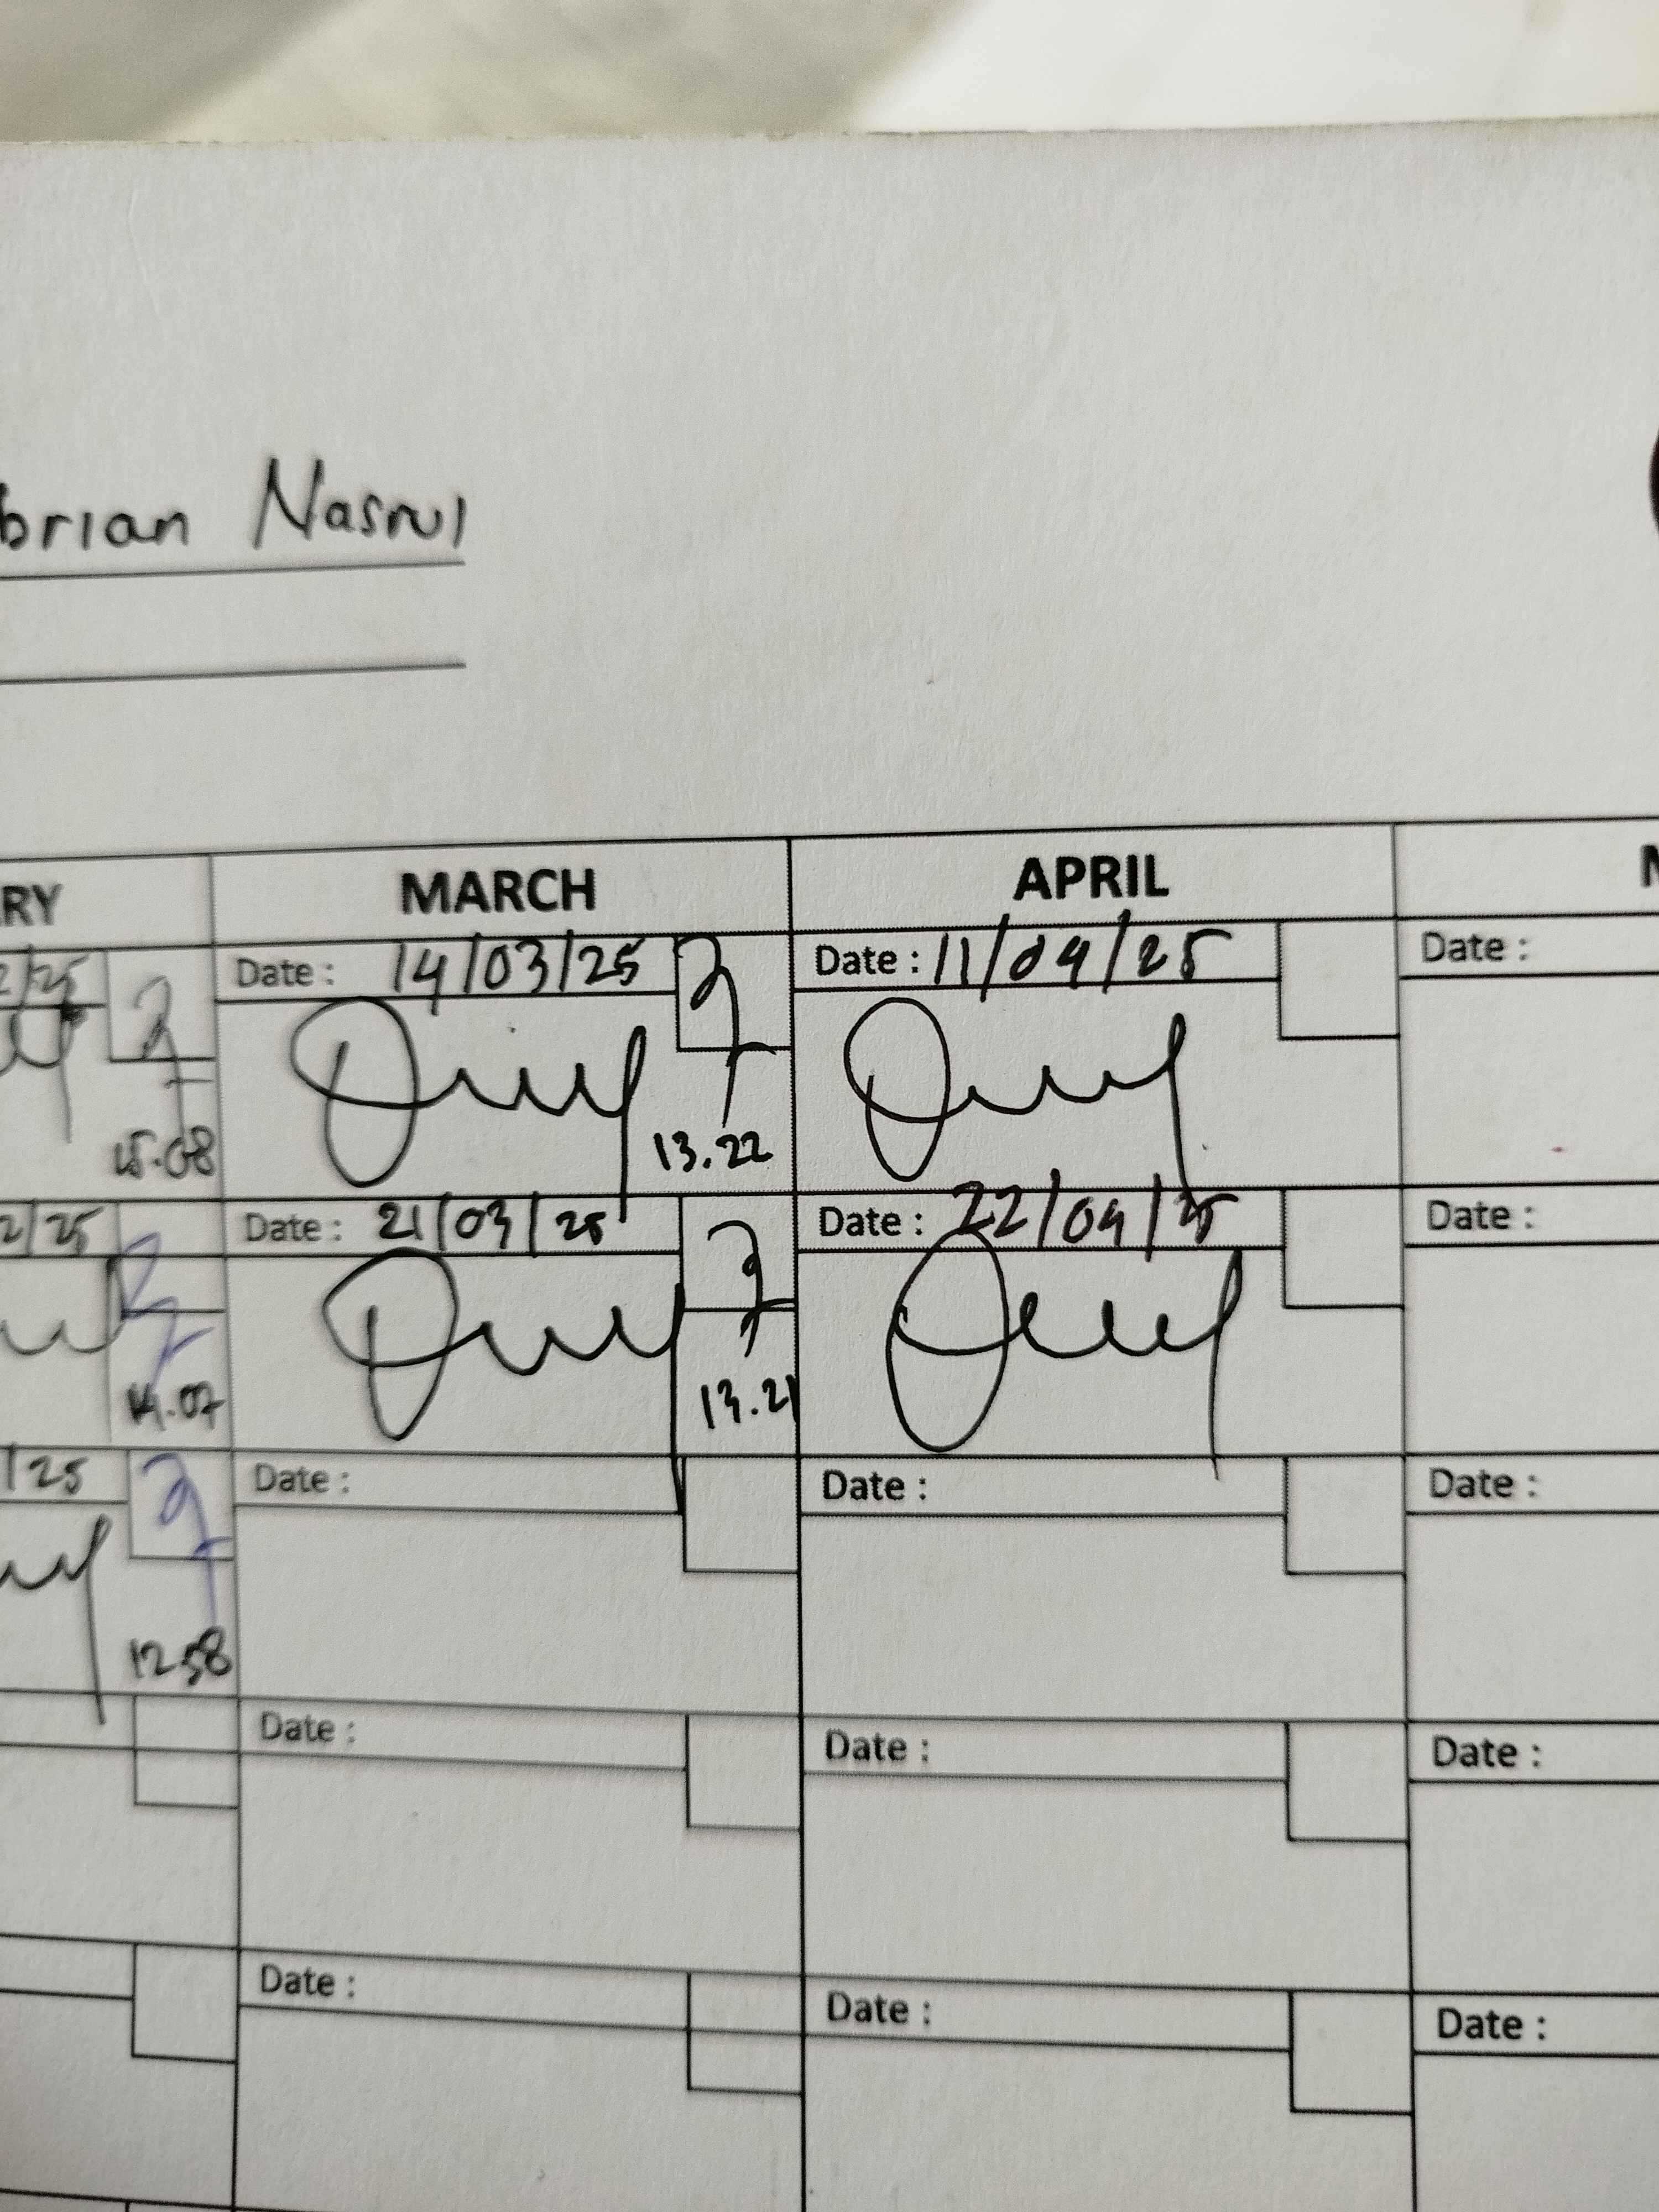 brian Nasrul
RY MARCH APRIL
2/25 Date : 14/03/25 Date : 11/04/25 Date :
15.08 13.22
2/25 Date : 21/03/25 Date : 22/04/25 Date :
14.07 13.21
/25 Date : Date : Date :
12.58
Date : Date : Date :
Date : Date : Date :